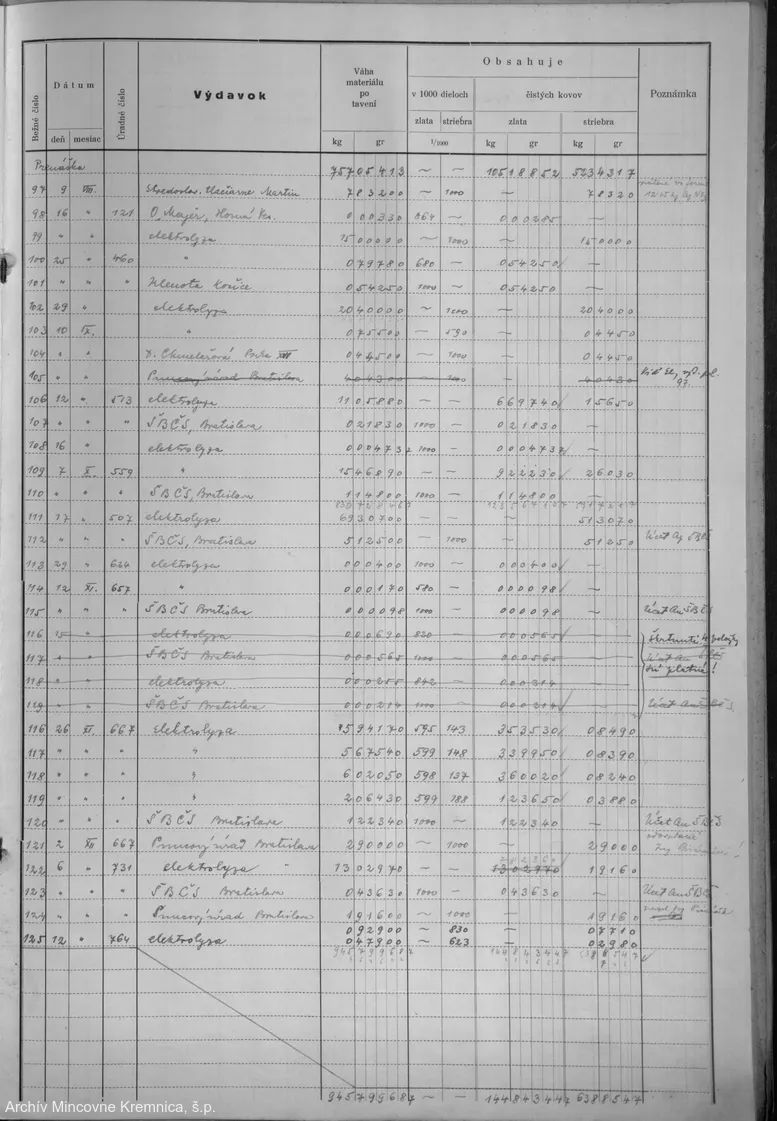 Bežné číslo
Dátum
deň mesiac
Úradné číslo
Výdavok
Váha materiálu po tavení
kg gr
Obsahuje
v 1000 dieloch
zlata striebra
1/1000
čistých kovov
zlata striebra
kg gr kg gr
Poznámka
Prenáška 75705413 ~ ~ 10518852 5234317
97 9 VIII. Stredoslov. Martin 783200 ~ 1000 ~ 78320
98 16 " 121 O. Majer, Horná Ves. 000330 864 ~ 000285 —
99 " " elektrolyza 1500000 ~ 1000 ~ 150000
100 25 " 460 " 079780 680 — 054250 —
101 " " " Klenota Košice 054250 1000 ~ 054250 —
102 29 " elektrolyza 2040000 ~ 1000 ~ 204000
103 10 IX. " 075500 ~ 590 ~ 04450
104 " " Chmelařová XIII 044500 ~ 1000 ~ 04450
105 " " Puncový úrad Bratislava 404300 ~ 1000 ~ 40430
106 12 " 513 elektrolyza 1105880 ~ — 669740 15650
107 " " " ŠBČS, Bratislava 021830 1000 — 021830 —
108 16 " elektrolyza 0004732 1000 — 0004732 —
109 7 X. 559 " 1546890 ~ — 922230 26030
110 " " " ŠBČS, Bratislava 114800 1000 — 114800 —
111 17 " 507 elektrolyza 6930700 — — ~ 513070
112 " " ŠBČS, Bratislava 512500 ~ 1000 ~ 51250 Účet Ag ŠBČS
113 29 " 624 elektrolyza 000400 1000 ~ 000400 —
114 12 XI. 657 " 000170 580 ~ 000098 —
115 " " " ŠBČS Bratislava 000098 1000 ~ 000098 — Účet Au ŠBČS
116 15 " elektrolyza 000690 820 — 000565 —
117 " " ŠBČS Bratislava 000565 1000 — 000565 — Účet Au ŠBČS
118 " " elektrolyza 000255 842 — 000214 sú platné!
119 " " ŠBČS Bratislava 000214 1000 — 000214 Účet Au ŠBČS
116 26 XI. 667 elektrolyza 594170 595 143 353530 08490
117 " " " " 567540 599 148 339950 08390
118 " " " " 602050 598 137 360020 08240
119 " " " " 206430 599 188 123650 03880
120 " " " ŠBČS Bratislava 122340 1000 ~ 122340 — Účet Au ŠBČS
121 2 XII 667 Puncový úrad Bratislava 290000 ~ 1000 ~ 29000
122 6 " 731 elektrolyza 1302970 — — 1302970 19160
123 " " " ŠBČS Bratislava 043630 1000 ~ 043630 ~ Účet Au ŠBČS
124 " " Puncový úrad Bratislava 191600 ~ 1000 — 19160
092900 ~ 830 — 07710
125 12 " 764 elektrolyza 047900 ~ 623 — 02980
945799687 ~ ~ 144843447 6388547
Archív Mincovne Kremnica, š.p.